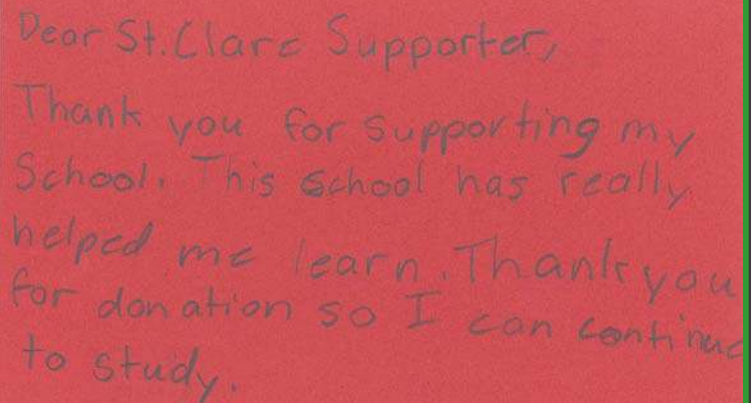 Dear St. Clare Supporter,
Thank you for supporting my
School. This school has really
helped me learn. Thank you
for donation so I can continue
to study.